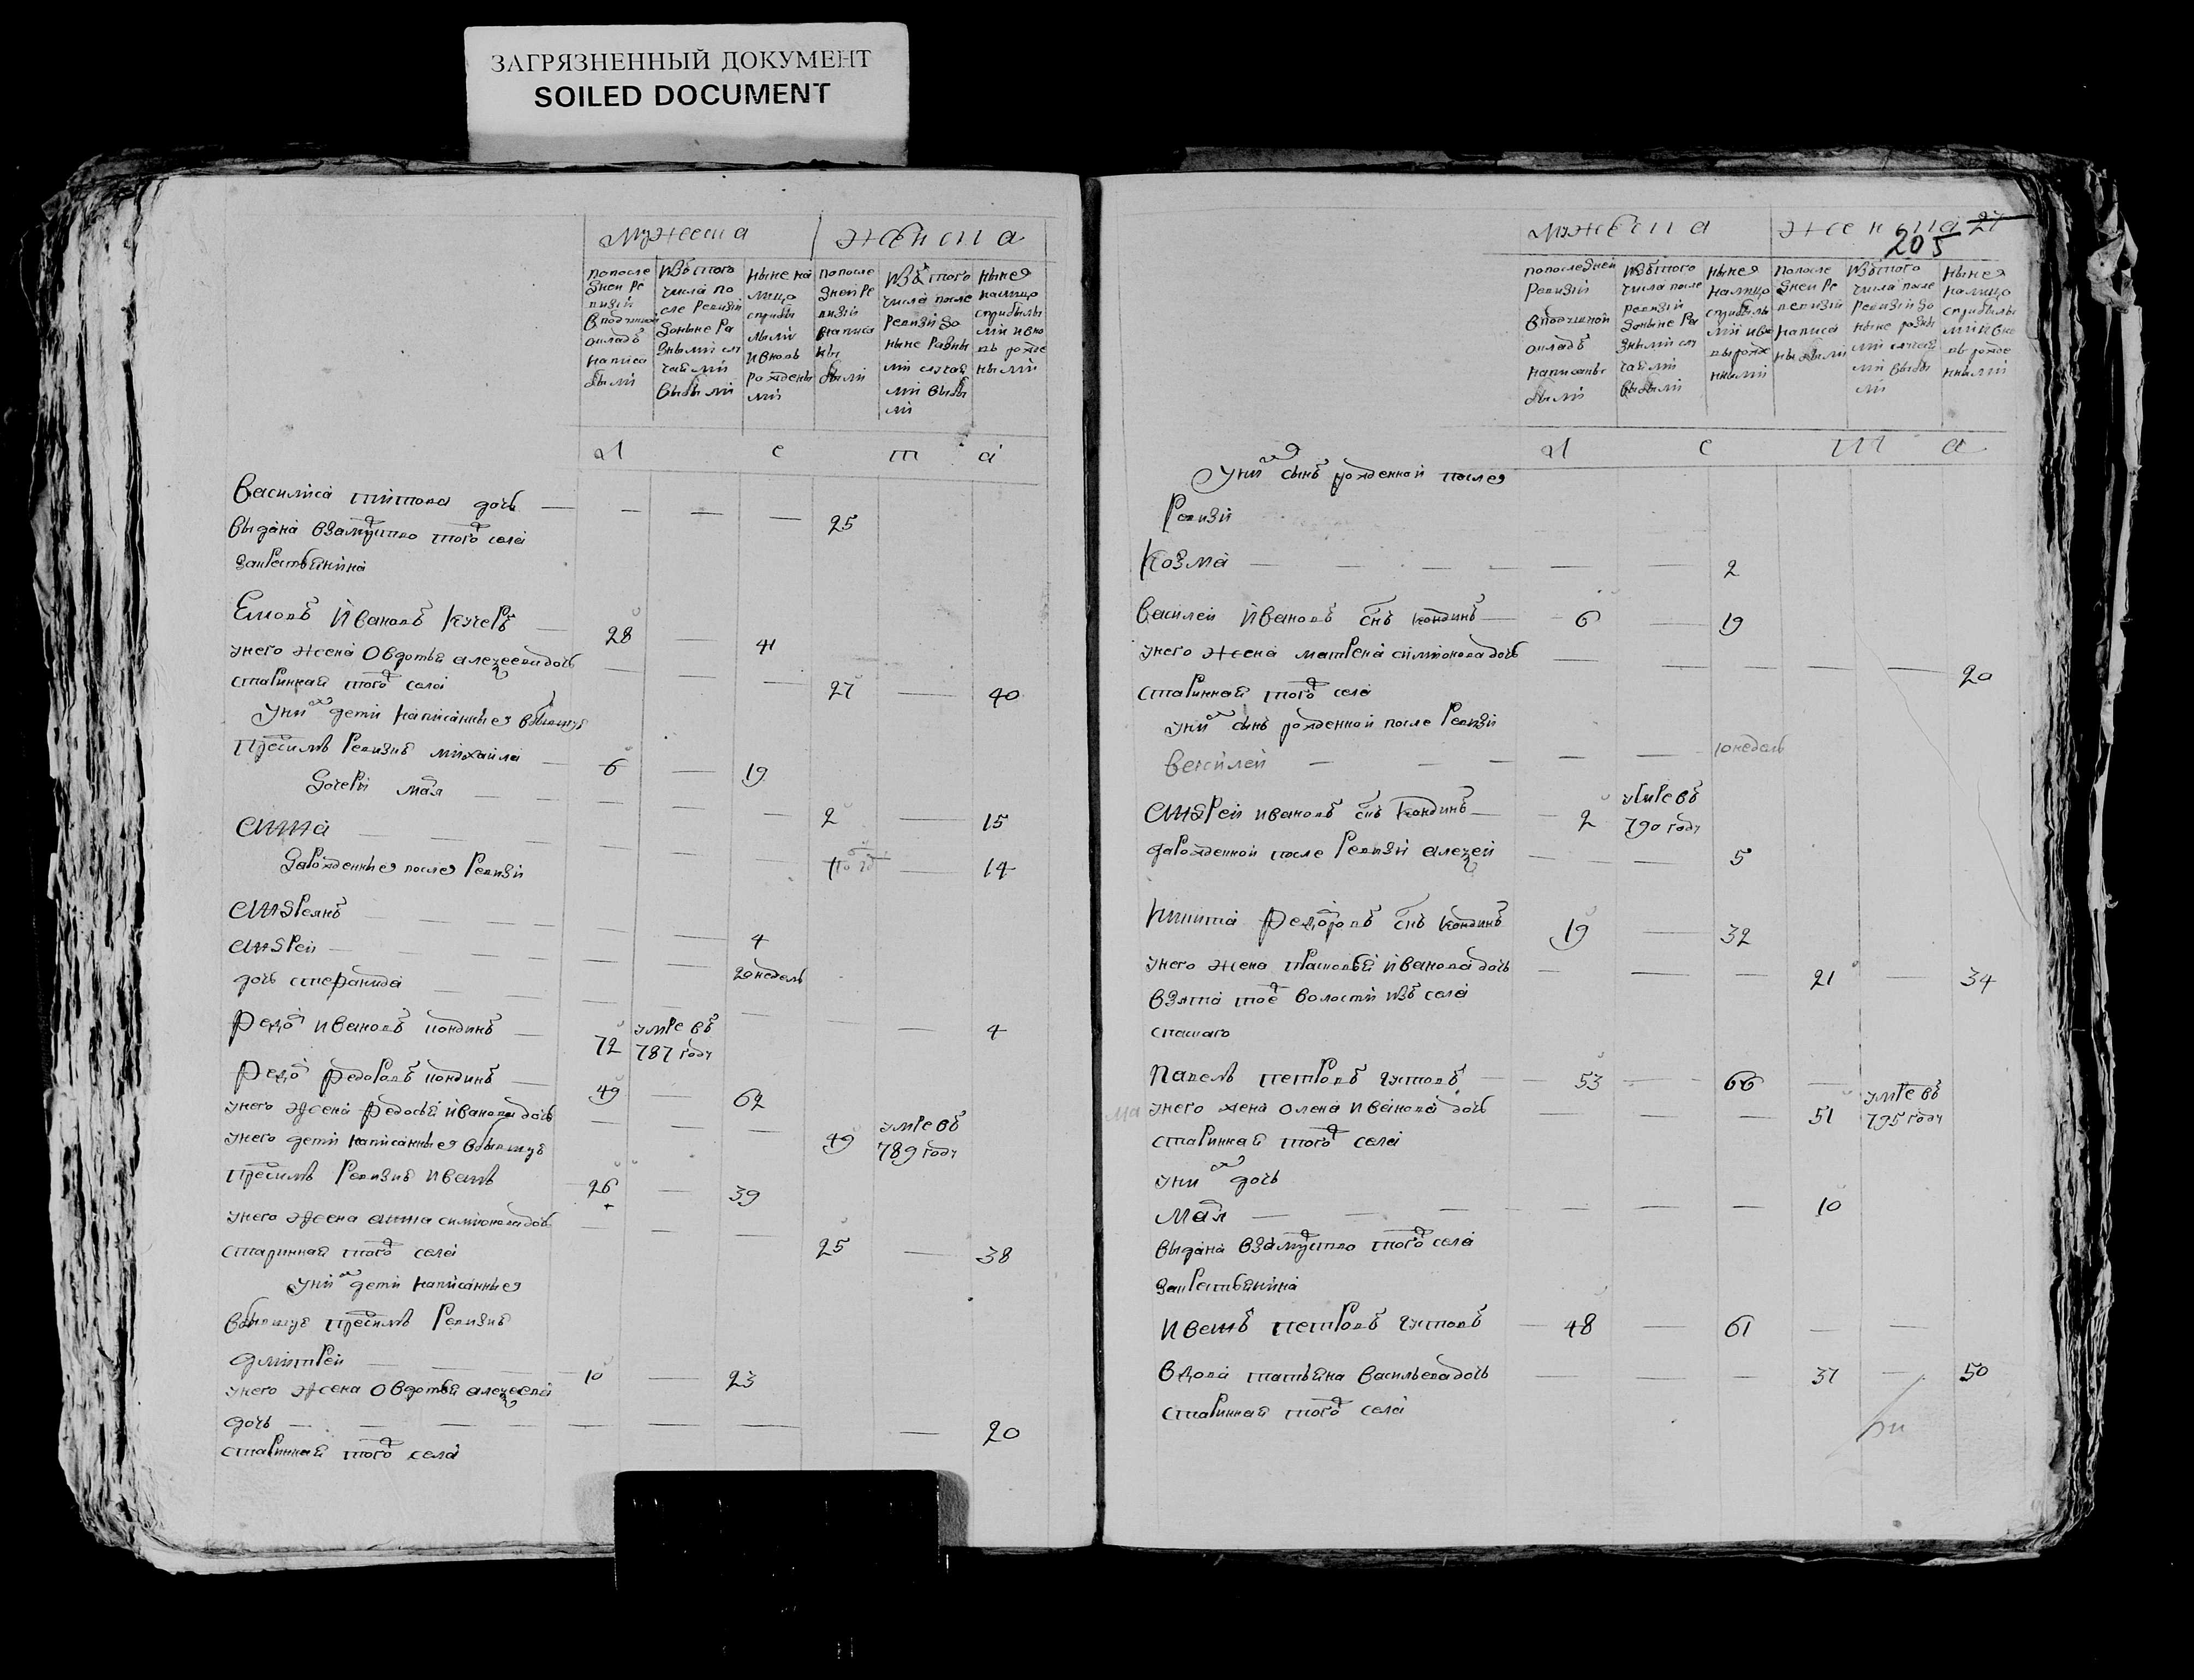 ЗАГРЯЗНЕННЫЙ ДОКУМЕНТ
SOILED DOCUMENT
мужеска женска
попосле дней ре визии в подушной окладъ написа были
изъ того числа по сле ревизии доныне ра зными слу чаеми выбыли
ныне на лицо с прибы лыми и вновь рожденны ми
попосле дней ре визии написа ны были
изъ того числа после ревизии до ныне разны ми случае ми выбы ли
ныне налицо сприбылы ми и вно вь рожде ными
л е т а
Василиса титова дочь — — — — 25
выдана взамуство того села
закрестьянина
Емолъ Ивановъ кучеръ — 28 — 41
унего жена Овдотья алеѯеева дочь — — —
стариннаѧ того села 27 — 40
Уних дети написанные вбывшую
пресилъ Ревизию михаила — 6 — 19
дочери мая — — — — — 2 — 15
анна — — — — — — 14
дарожденные после Ревизи
андреянъ — — — — — 4
андреи — — — — — 20 недель
дочь степанида — — — — — — — 4
Ѳедо Ивановъ кондинъ — 72 умре въ 787 году
Ѳедо Ѳедоровъ кондинъ — 49 — 62
унего жена Ѳедосья Иванова дочь — — — 49 умре въ 789 году
унего дети написанные вбывшую
пресилъ Ревизию Иванъ 26 — 39
унего жена анна симионова дочь — — —
стариннаѧ того села 25 — 38
Уних дети написанные
вбывшую пресилъ Ревизию
дмитреи — — 10 — 23
унего жена Овдотья алеѯеева
дочь — — — — — — — 20
стариннаѧ того села
мужеска женска 27
205
попоследней ревизии в подушной окладъ написаны были
изъ того числа после ревизии доныне ра зными слу чаеми выбыли
ныне налицо сприбылы ми и вно вь рожде ными
попосле дней ре визии написа ны были
изъ того числа после ревизии до ныне разны ми случае ми выбы ли
ныне налицо сприбылы ми и вно вь рожде ными
л е т а
Уних сынъ рожденной после
Ревизи
Козма — — — — — — 2
василеи Ивановъ снъ кондинъ — 6 — 19
унего жена матрена симионова дочь — — — — — 20
стариннаѧ того села
уних сынъ рожденной после Ревизи
василей — — — — — 10 недель
андреи ивановъ снъ кондинъ — 2 умре въ 790 году
дарожденной после Ревизи алеѯей — — — 5
никита Ѳедоровъ снъ кондинъ 19 — 32
унего жена прасковья Иванова дочь — — — 21 — 34
взята тое волости изъ села
спаскаго
Павелъ петровъ густовъ — 53 — 66 —
унего жена Олена Иванова дочь — — — 51 умре въ 795 году
стариннаѧ того села
уних дочь
мая — — — — — — — 10
выдана взамуство того села
закрестьянина
Иванъ петровъ густовъ — 48 — 61 — —
вдова татьяна васильева дочь — — — 37 — 50
стариннаѧ того села